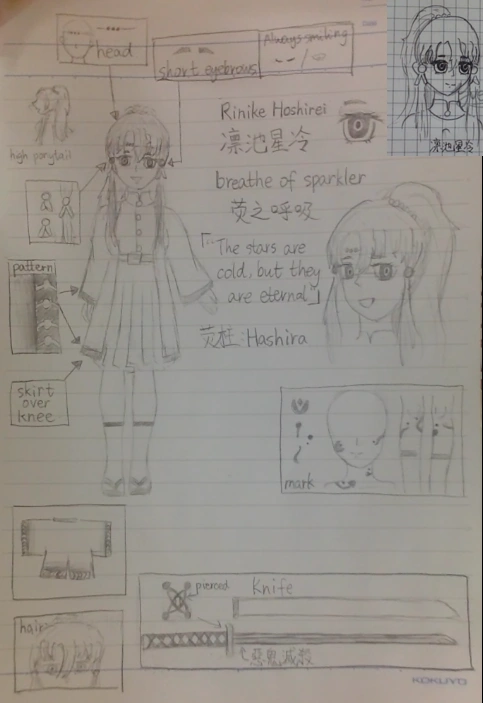 head
short eyebrows
Always smiling
凛池星冷
high ponytail
Rinike Hoshirei
凛池星冷
breathe of sparkler
荧之呼吸
「"The stars are
cold, but they
are eternal"」
荧柱:Hashira
pattern
skirt
over
knee
mark
hair
pierced
Knife
惡鬼滅殺
KOKUYO